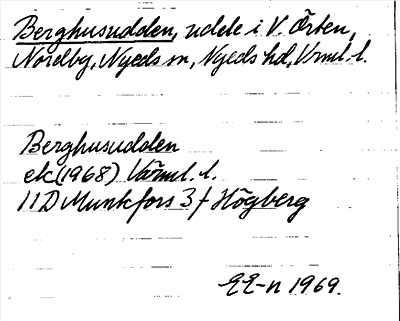 Berghusudden, udde i V. Örten,
Nordby, Nyeds sn, Nyeds hd, Vrml. l.
Berghusudden
ek (1968) Värml. l.
11D Munkfors 3 f Högberg
EE-n 1969.